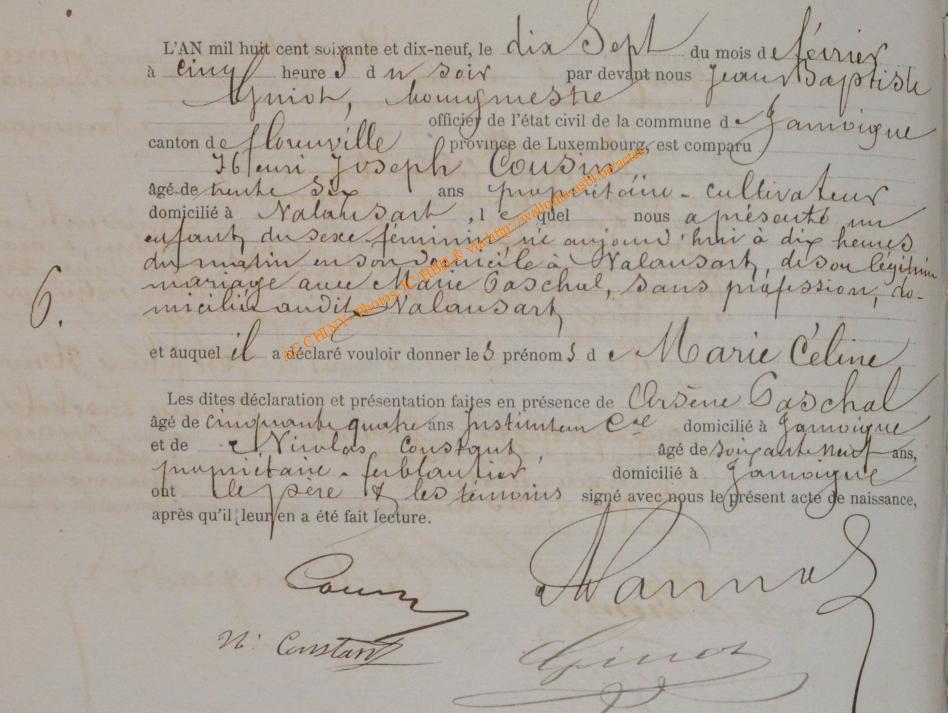 L'AN mil huit cent soixante et dix-neuf, le dix Sept du mois de février
à cinq heures du soir par devant nous Jean Baptiste
bourgmestre
officier de l'état civil de la commune de Jamoigue
canton de florenville province de Luxembourg, est comparu
Henri Joseph Cousin
âgé de trente Six ans propriétaire - cultivateur
domicilié à Valansart, lequel nous a présenté un
enfant du sexe féminin, né aujourd'hui à dix heures
du matin en son domicile à Valansart, de son légitime
6.
mariage avec Marie Paschal, sans profession, do-
micilié audit Valansart
et auquel il a déclaré vouloir donner les prénoms de Marie Céline
Les dites déclaration et présentation faites en présence de Arsène Paschal
âgé de cinquante quatre ans Instituteur Cal domicilié à Jamoigue
et de Nicolas Constant, âgé de soixante neuf ans,
propriétaire - ferblantier domicilié à Jamoigue
ont le père & les témoins signé avec nous le présent acte de naissance,
après qu'il leur en a été fait lecture.
Cousin
N. Constant